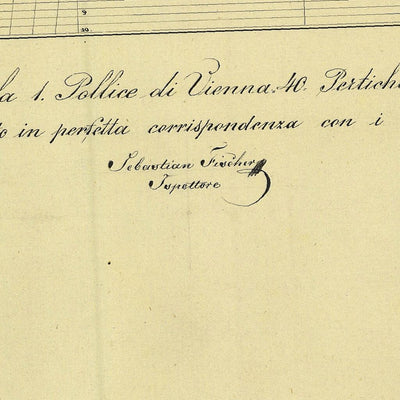 9
10
la 1. Pollice di Vienna: 40. Pertiche
to in perfetta corrispondenza con i
Sebastian Fischer
Ispettore